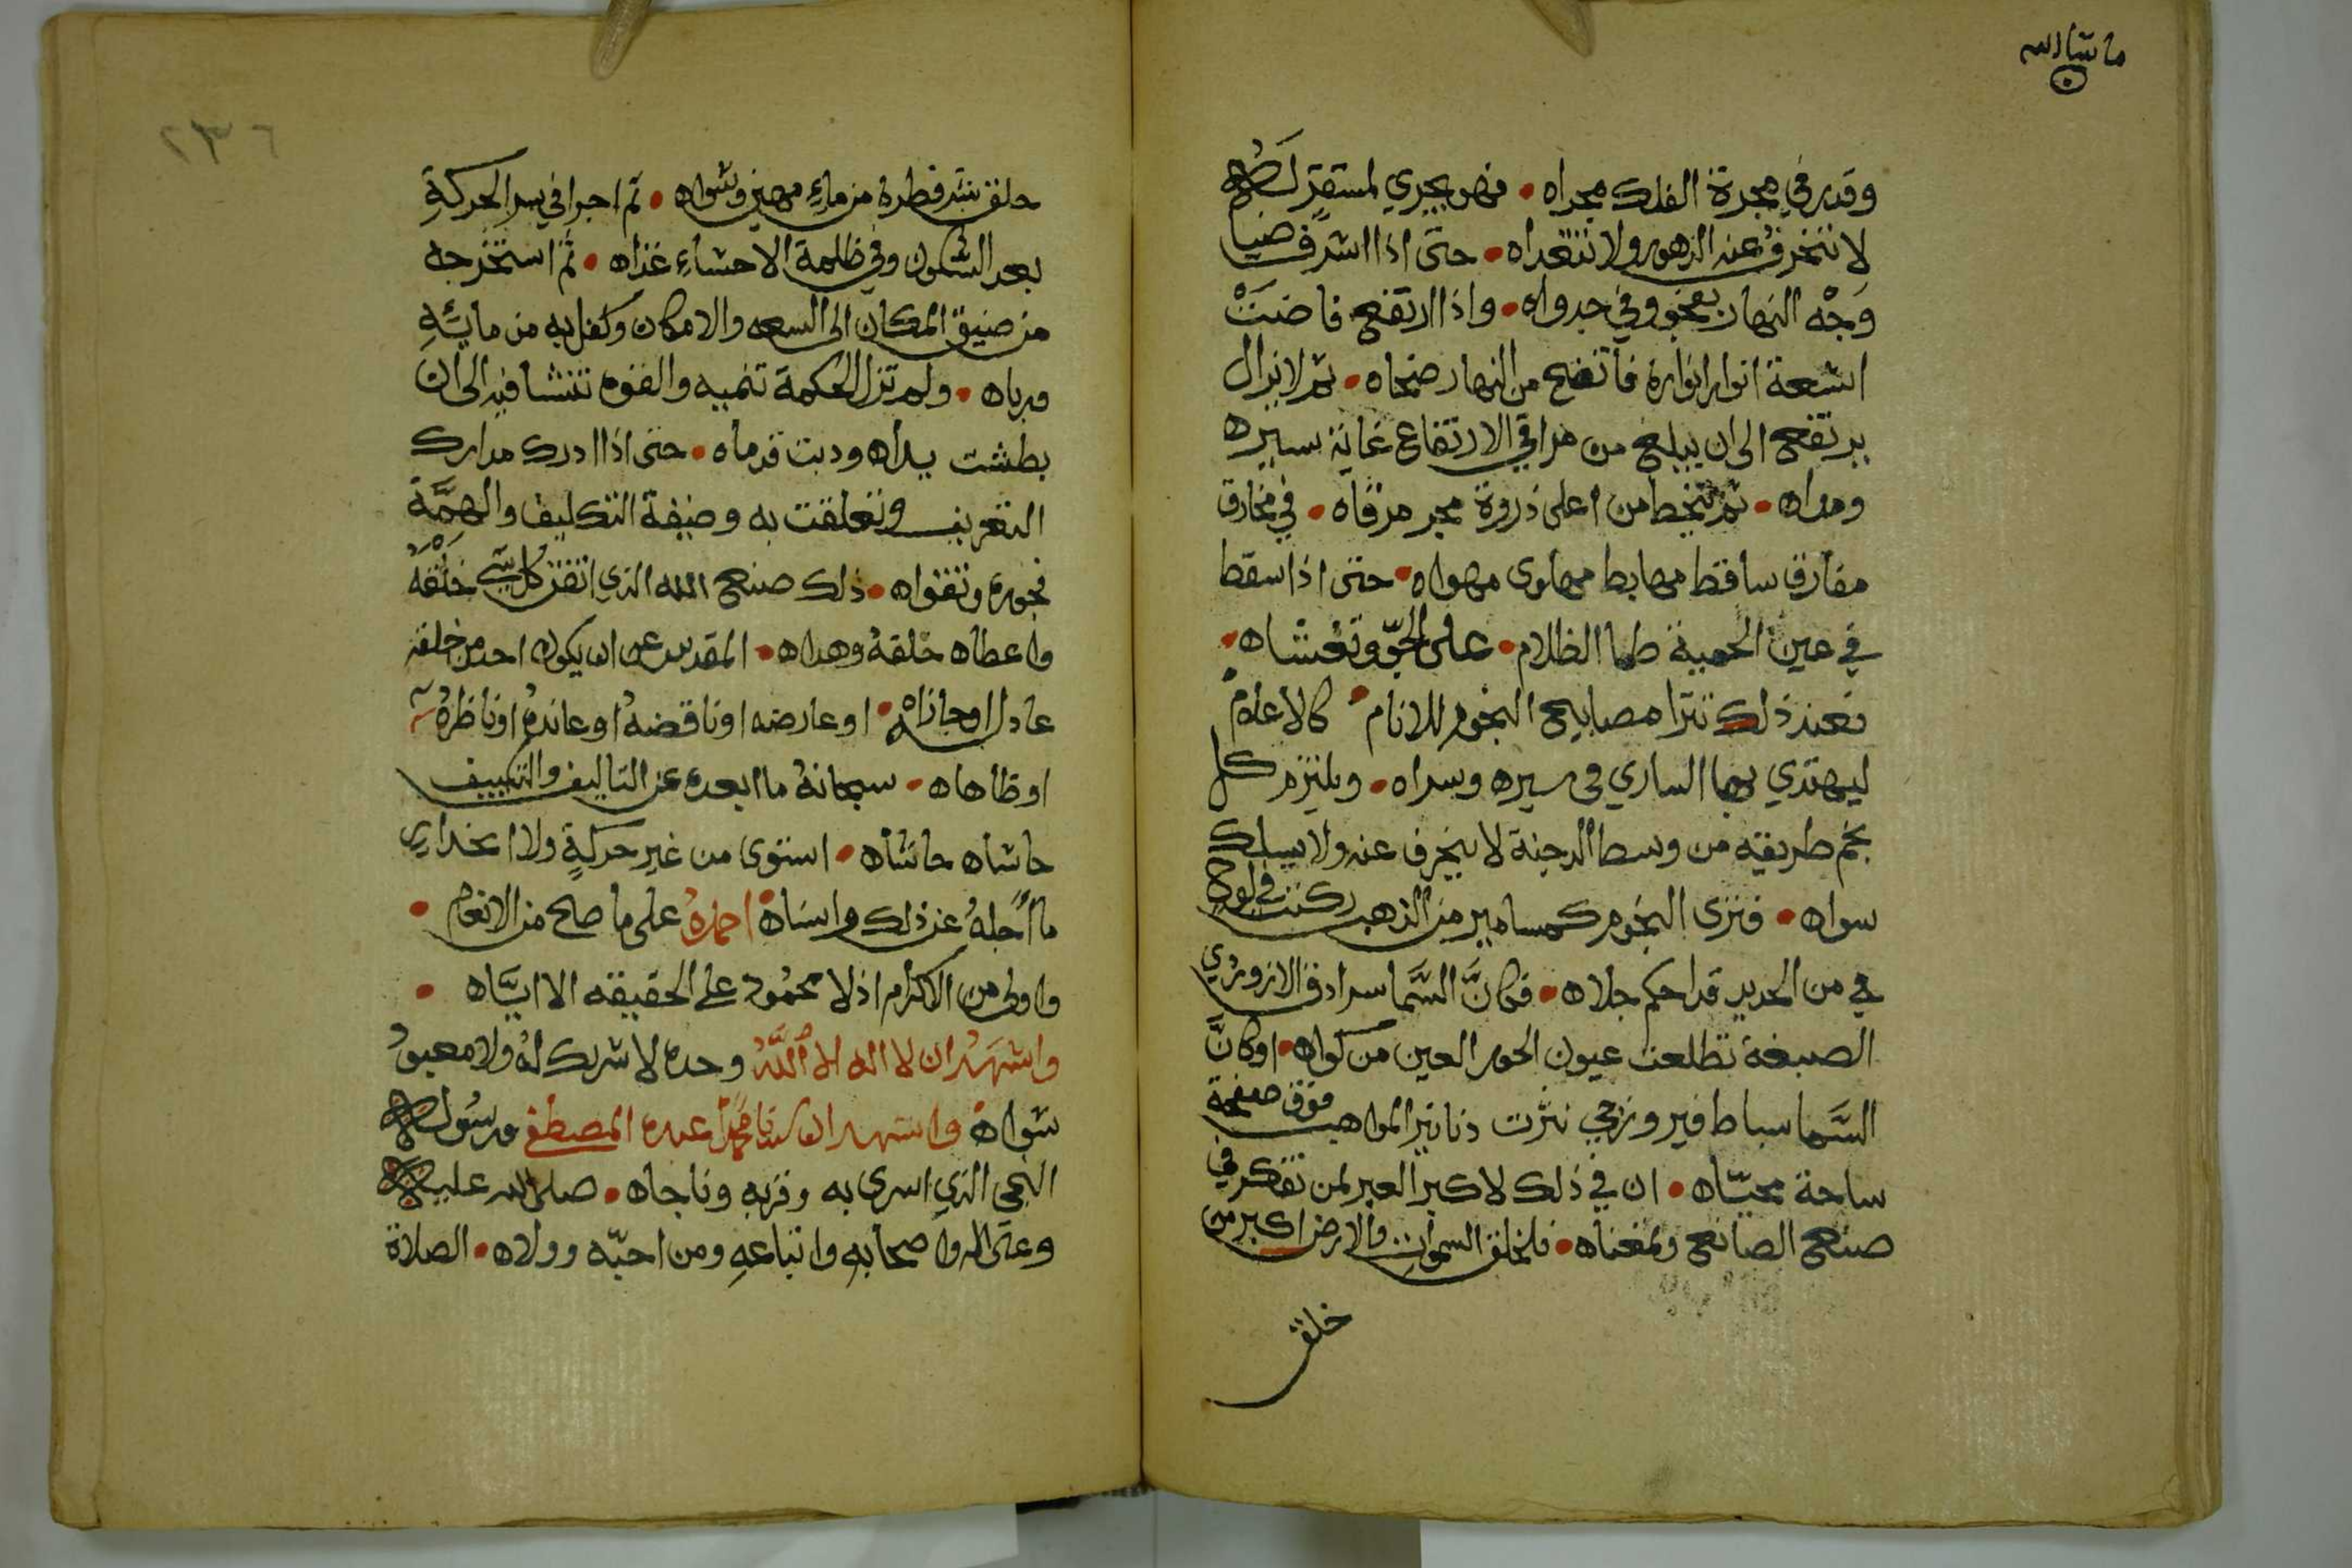 ما شاء الله
وقدر في مجرة الفلك مجراه • فهو يجري لمستقر لها
لا تنخرف عنه الزهور ولا تتعداه • حتى اذا اشرف ضيا
وَجْه النهار بفجو وفي جدواه • واذا ارتفع فاضَتْ
اشعة انوار انواره فاتضح من النهار ضحاه • ثم لا يزال
يرتفع الى ان يبلغ من مراقي الارتفاع غاية سيره
ومداه • ثم ينحط من اعلى ذروة مجر مرقاه • في مخارق
مفارق ساقط مهابط مهاوى مهواه • حتى اذا سقط
في عين الحمية طما الظلام • على الجوّ وتغشاه •
فعند ذلك تترا مصابيح النجوم للانام • كالاعلام
ليهتدي بها الساري في سيره وسراه • ويلتزم كل
نجم طريقه من وسط الدجنة لا ينحرف عنه ولا يسلك
سواه • فترى النجوم كمسامير من الذهب ركنت في لوح
في من الحديد قد احكم جلاه • فكانَّ السَّما سرادق الازوردي
الصبغة تطلعت عيون الحور العين من كواه • اوكانَّ
السَّما سباط فيروزجي نثرت دنانير المواهب فوق صفحة
ساحة محيّاه • ان في ذلك لاكبر العبر لمن تفكر في
صنع الصانع ومغناه • فلخلق السموات والارض اكبر من
خلق
٢٣٦
خلق بشر فطره من ماءٍ مهين وسواه • ثم اجرا فيه سر الحركةِ
بعد السكون وفي ظلمة الاحشاءِ غذاه • ثم استخرجه
من ضيق المكان الى السعه والامكان وكفل به من مايتهِ
ورباه • ولم تزل الحكمة تنميه والقوه تنشا فيه الى ان
بطشت يداه ودبت قدماه • حتى اذا ادرك مدارك
التعريف وتعلقت به وضيفة التكليف والهمَّه
فجوره وتقواه • ذلك صنع الله الذي اتقن كل شي خلقهُ
واعطاه خلقهُ وهداه • المقدس عن ان يكون احد من خلقه
عادل او جازاه • او عارضه او ناقضهُ او عاندهُ او ناظرهُ
اوظاهاه • سبحانهُ ما ابعده عن التاليف والتكييف
حاشاه حاشاه • استوى من غير حركةٍ ولا انحدارٍ
ما اجلهُ عن ذلك واسناه احمدهُ على ما صلح من الانعام •
واولى من الاكرام اذ لا محمُود على الحقيقه الا ايَّاه •
واشهدُ ان لا اله الا اللهُ وحده لا شريك لهُ ولا معبودُ
سواه واشهد ان سيدنا محمدًا عبده المصطفى ورسُوله
النبي الذي اسرى به وقربه وناجاه • صلى الله عليه
وعلى اله واصحابهِ واتباعهِ ومن احبّه ووالاه • الصلاة